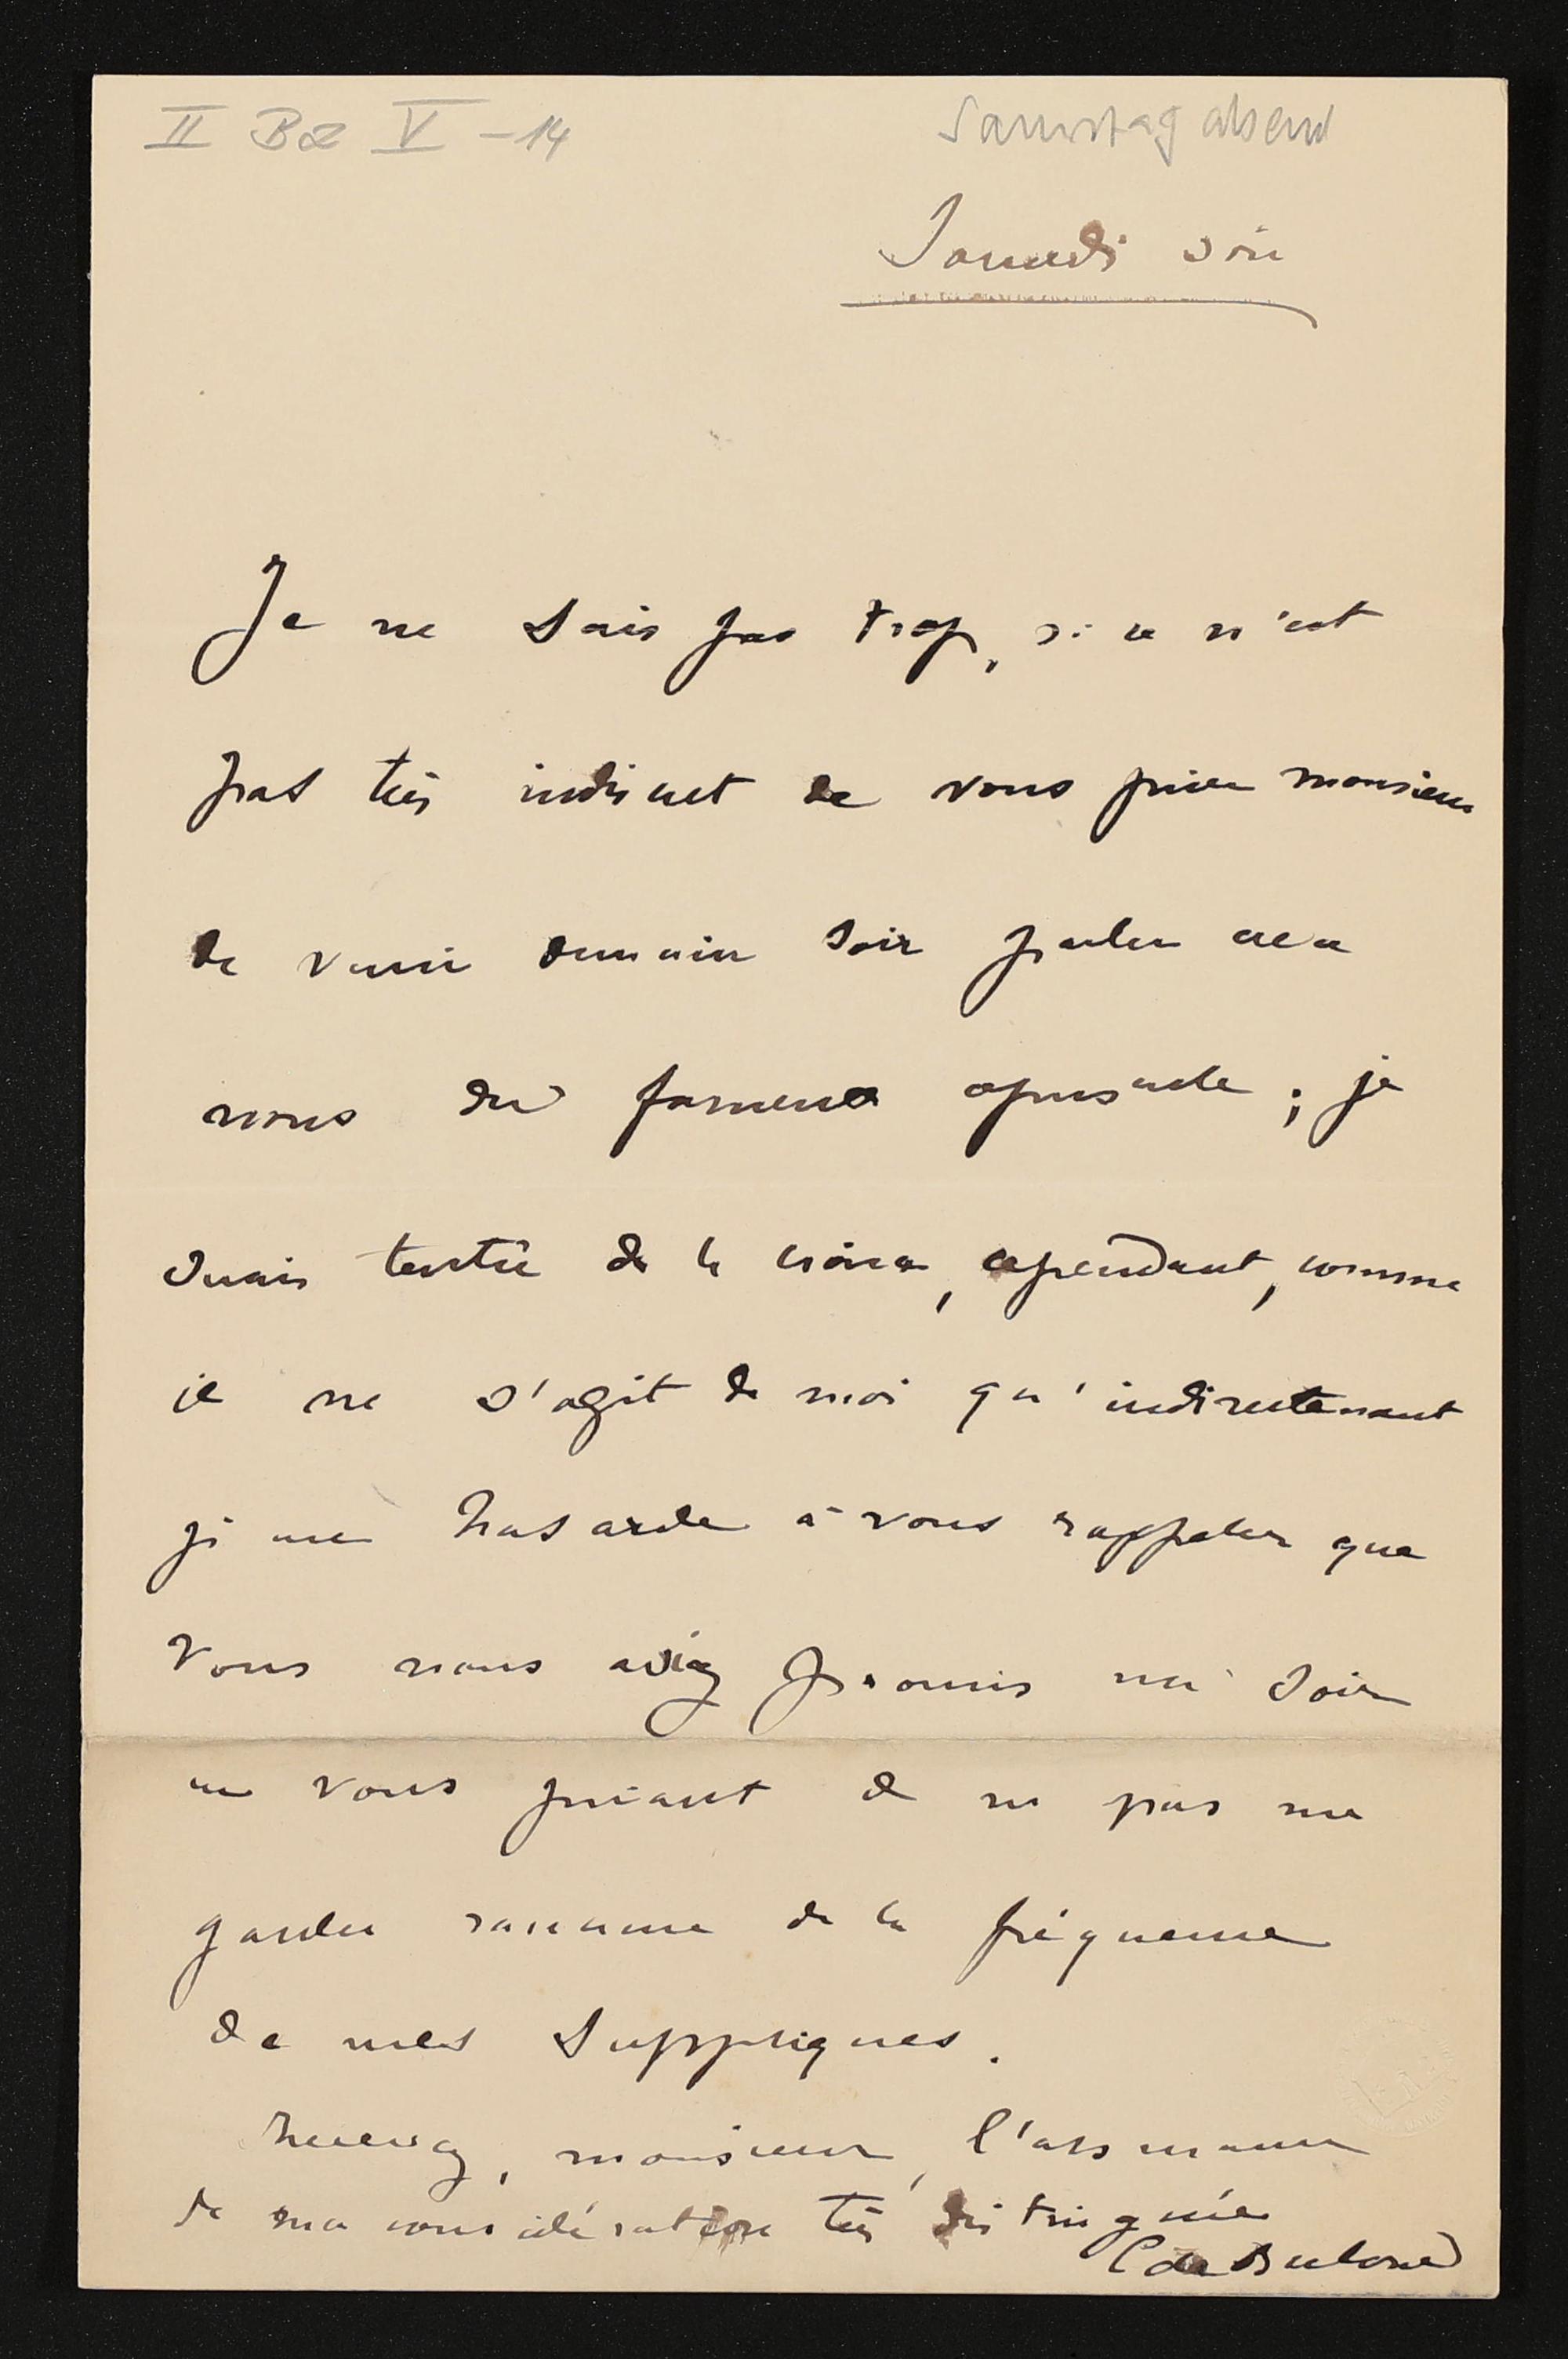 II Bz V - 14
Samstag abend
Samedi soir
Je ne sais pas trop, si ce n'est
pas très indiscret de vous prier monsieur
de venir demain soir parler avec
nous du fameux opuscule ; je
serais tentée de le croire, cependant, comme
il ne s'agit de moi qu'indirectement
je me hasarde à vous rappeler que
vous nous aviez promis un soir
en vous priant de ne pas me
garder rancune de la fréquence
de mes suppliques.
Recevez, monsieur, l'assurance
de ma considération très distinguée
C de Bulow